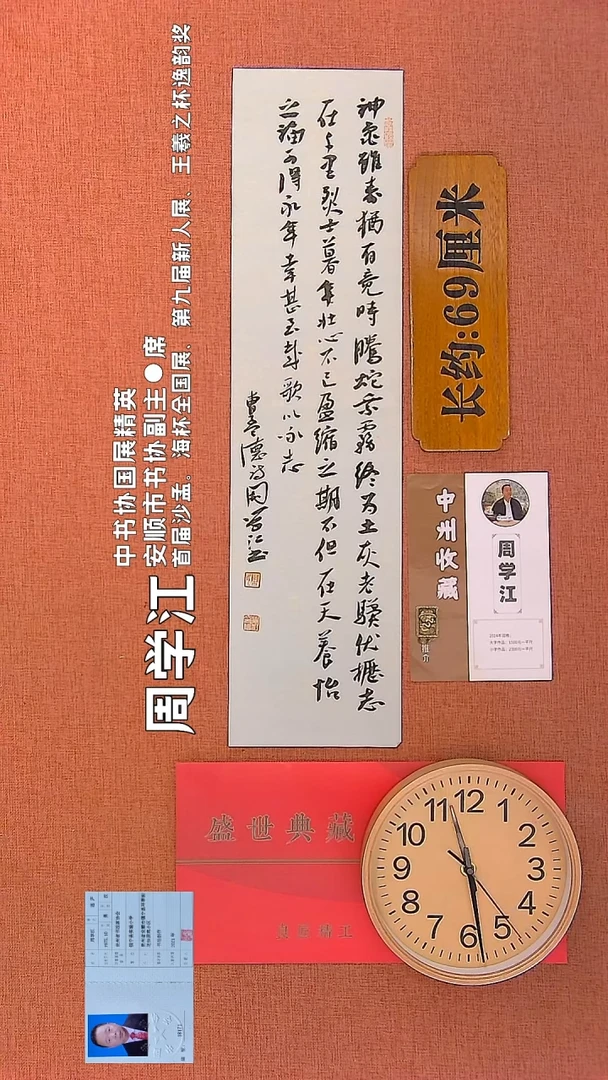 周学江
中书协国展精英
安顺市书协副主●席
首届沙孟。海杯全国展、第九届新人展、王羲之杯逸韵奖
神龟虽寿犹有竟时腾蛇乘雾终为土灰老骥伏枥志
在千里烈士暮年壮心不已盈缩之期不但在天养怡
之福可得永年幸甚至哉歌以咏志
曹孟德诗周学江书
长约:69厘米
中州收藏
推介
周学江
盛世典藏
12
1
2
3
4
5
6
7
8
9
10
11